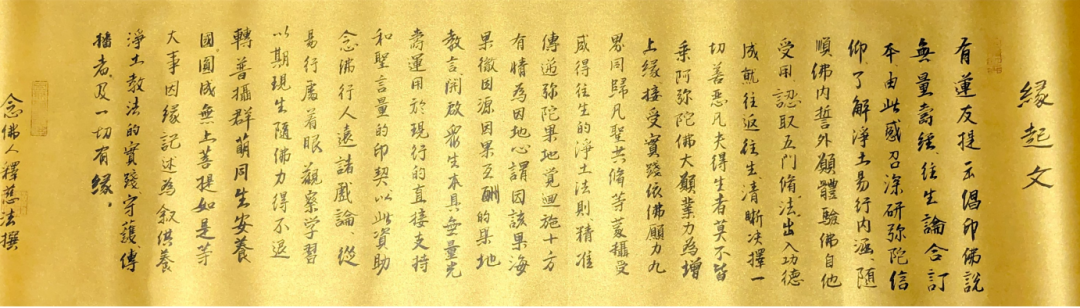 緣起文
有蓮友提示倡印佛說
無量壽經、往生論合訂
本、由此感召深研弥陀信
仰、了解淨土易行內涵、隨
順佛內誓外願體驗佛自他
受用、認取五門脩法出入功德
成就、往返往生、清晰决擇一
切善惡凡夫得生者莫不皆
乘阿弥陀佛大願業力為增
上緣、接受實踐依佛願力九
界同歸凡聖共脩等蒙攝受
咸得往生的淨土法則、精准
傳遞弥陀果地覚迴施十方
有情為因地心謂因該果海
果徹因源因果互酬的果地
教言、開啟眾生本具無量光
壽運用於現行的直接支持
和聖言量的印契、以此資助
念佛行人遠諸戲論、從
易行處着眼觀察学習
以期現生隨佛力得不退
轉普攝群萌同生安養
國、圓成無上菩提、如是等
大事因緣記述為叙供養
淨土教法的實踐、守護、傳
播者、及一切有緣。
念佛人釋慈法撰